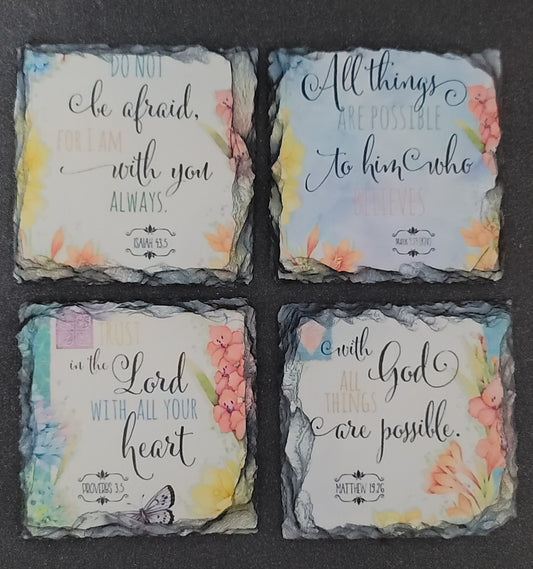 DO NOT
be afraid,
FOR I AM
with you
ALWAYS.
ISAIAH 43:5
All things
ARE POSSIBLE
to him who
BELIEVES
MARK 9:23 (KJV)
TRUST
in the
Lord
WITH ALL YOUR
heart
PROVERBS 3:5
with
God
ALL
THINGS
are possible.
MATTHEW 19:26